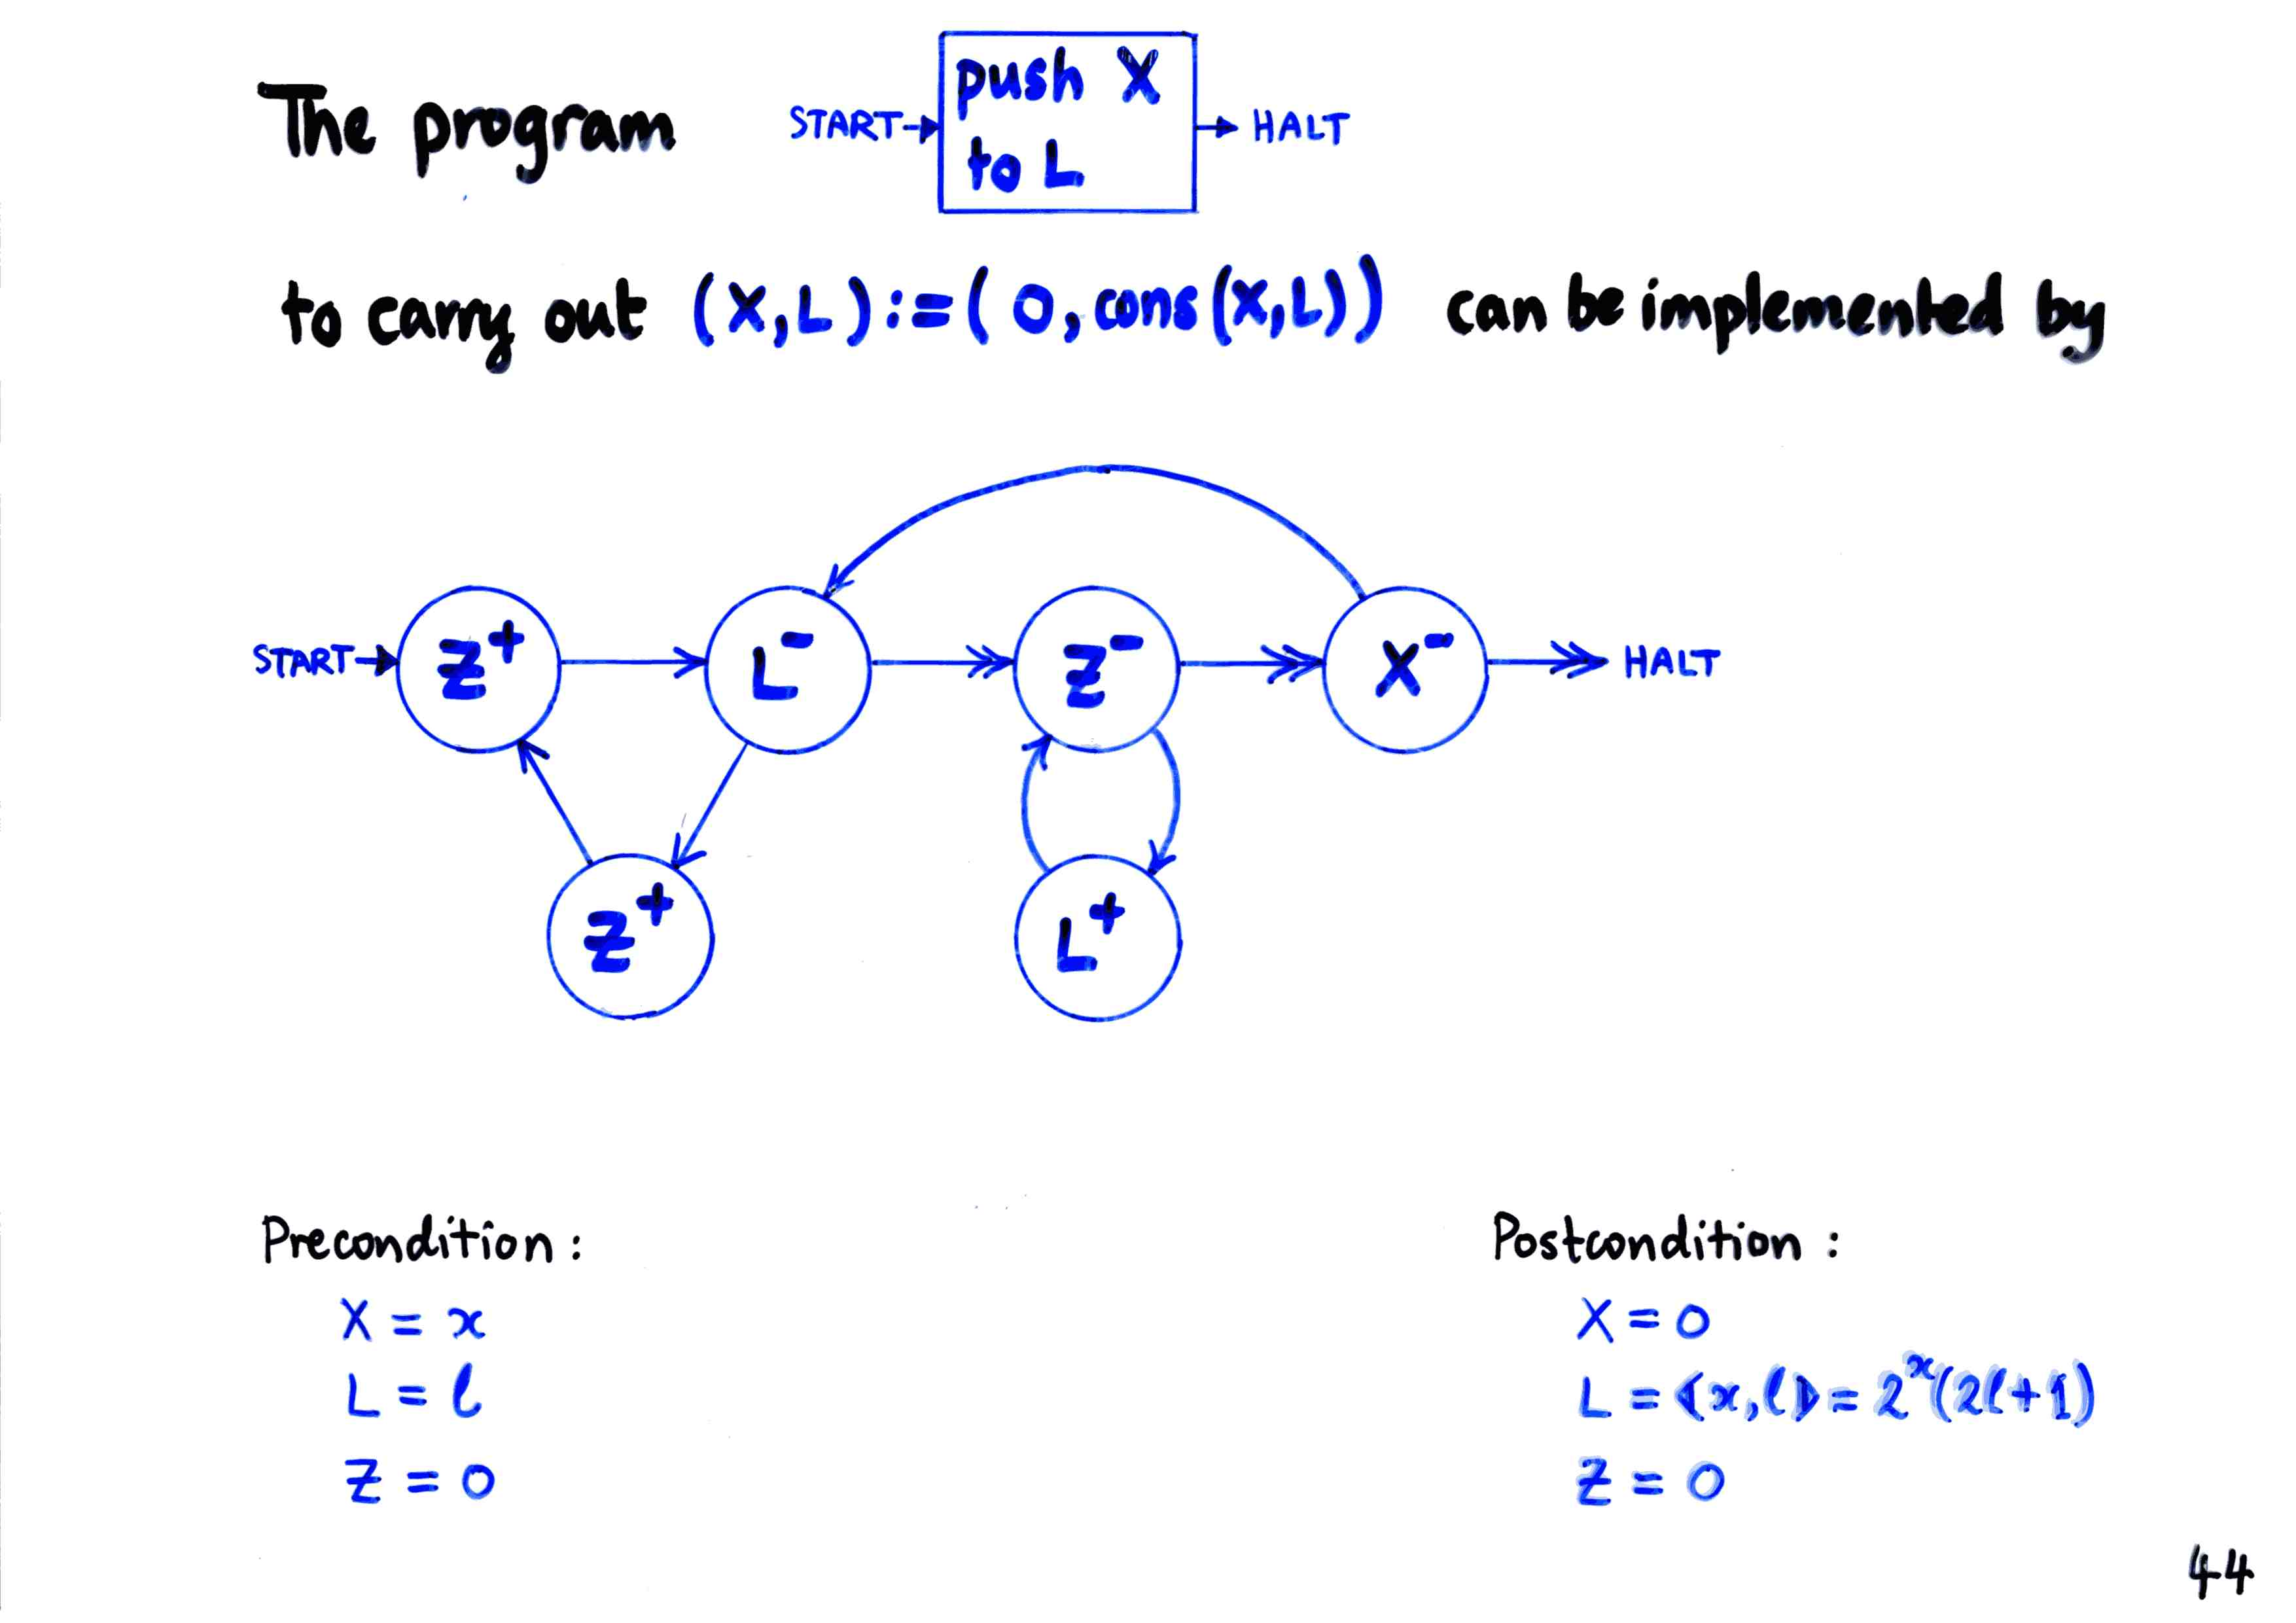 The program START push X to L HALT
to carry out (X,L):=(0,cons(X,L)) can be implemented by
START Z⁺ L⁻ Z⁻ X⁻ HALT
Z⁺ L⁺
Precondition: Postcondition:
X = x X = 0
L = ℓ L = ⟪x,ℓ⟫ = 2ˣ(2ℓ+1)
Z = 0 Z = 0
44